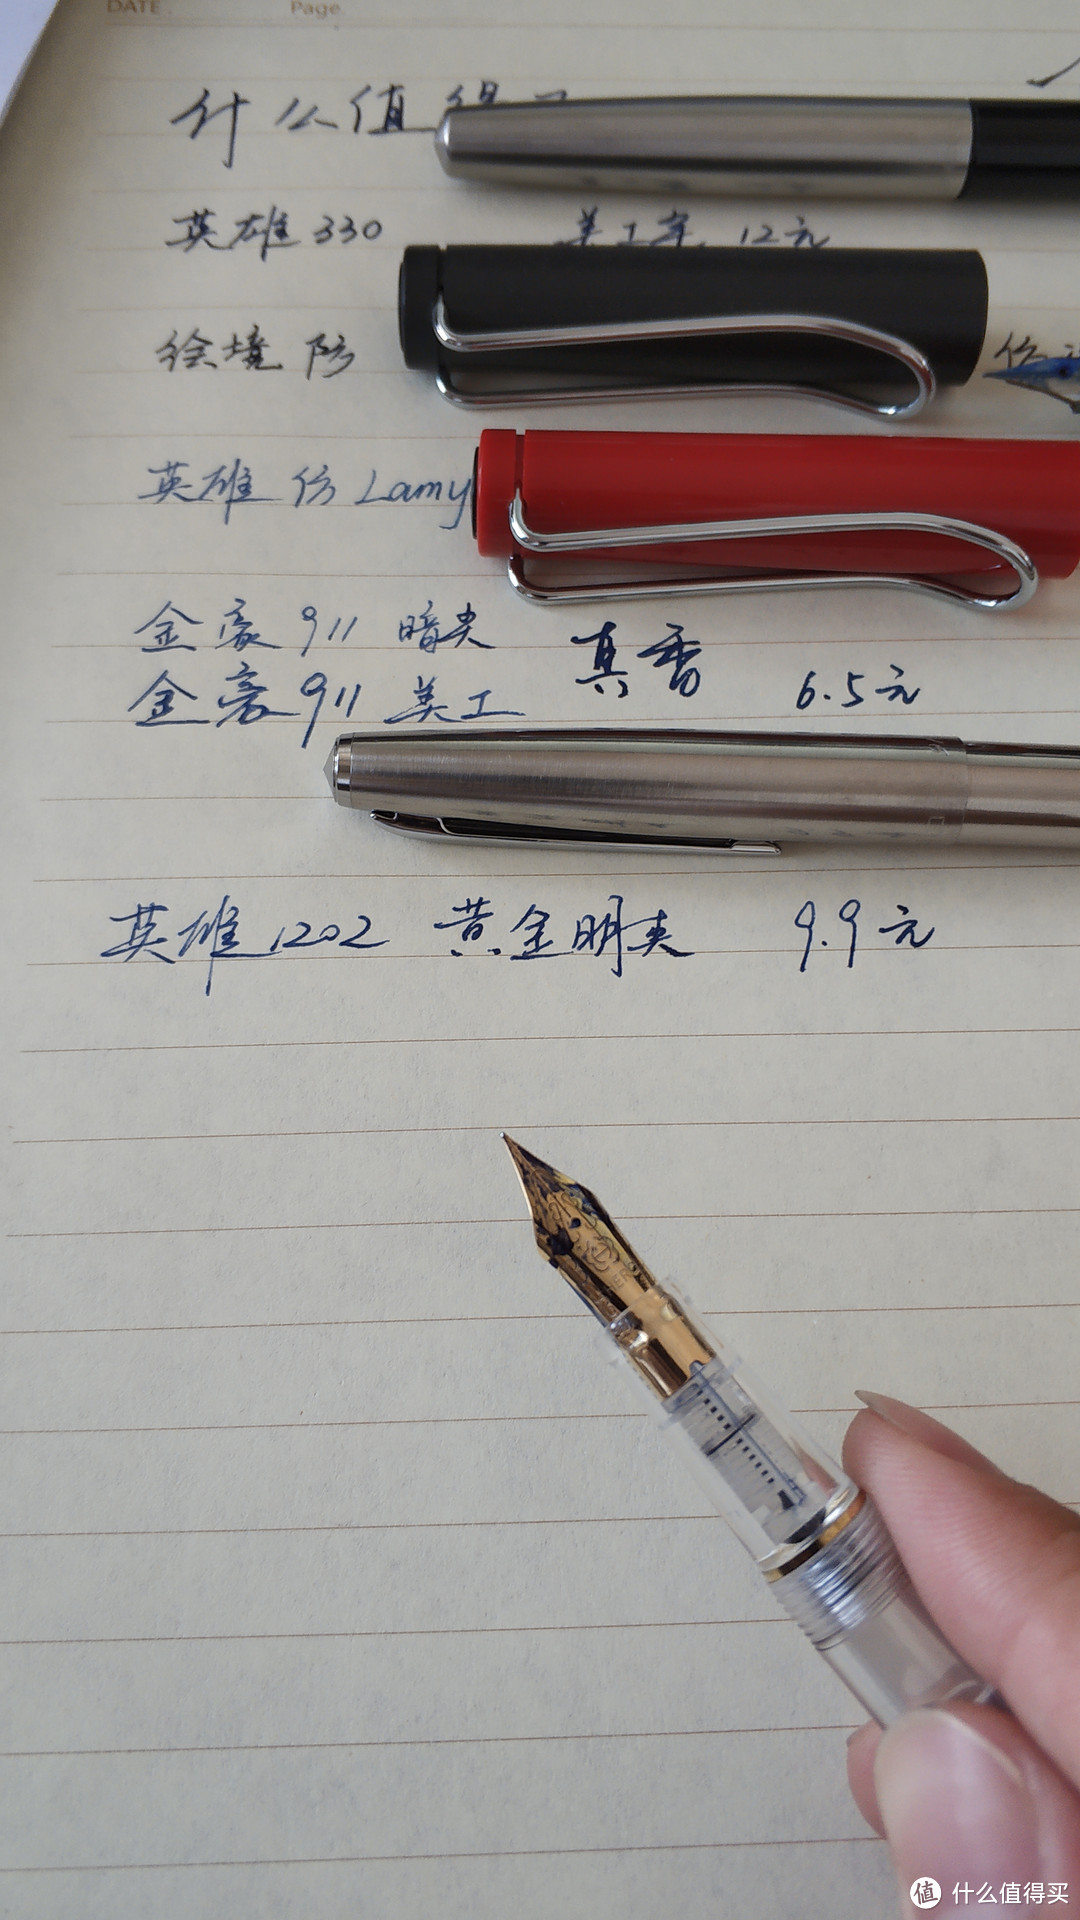 DATE. Page.
什么值得
英雄 330 美工笔 12元
绘境 仿
英雄 仿 Lamy
金豪 911 暗尖
真香
金豪 911 美工 6.5元
英雄 1202 黄金明尖 9.9元
值 什么值得买